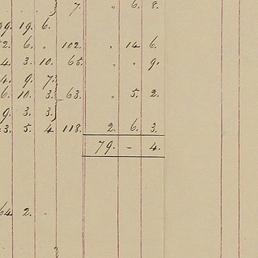 } 7. „ 6. 8.
99. 19. 6.
2. 6. „ 102. „ 14. 6.
4. 3. 10. 65. „ „ 9.
4. 9. 7.
6. 10. 3. } 63. „ 5. 2.
9. 3. 3.
3. 5. 4. 118. 2. 6. 3.
79. - 4.
64. 2. -